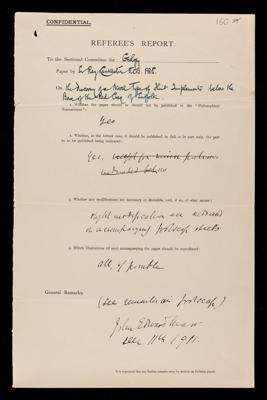 CONFIDENTIAL.
160
REFEREE'S REPORT.
To the Sectional Committee for Geology
Paper by Sir Ray Lankester KCB FRS.
On the Discovery of a Novel Type of Flint Implements below the
Base of the Red Crag of Suffolk
1. Whether the paper should or should not be published in the "Philosophical
Transactions":
Yes
2. Whether, in the former case, it should be published in full or in part only, the part
to be published being indicated:
Yes, except for minor
indicated below
3. Whether any modifications are necessary or desirable, and, if so, of what nature:
Slight modifications are indicated
on accompanying foolscap sheets
4. Which illustrations (if any) accompanying the paper should be reproduced:
all if possible
General Remarks.
(see remarks on foolscap)
John Edward Marr
Dec 11th 1911.
It is requested that any further remarks may be written on foolscap paper.